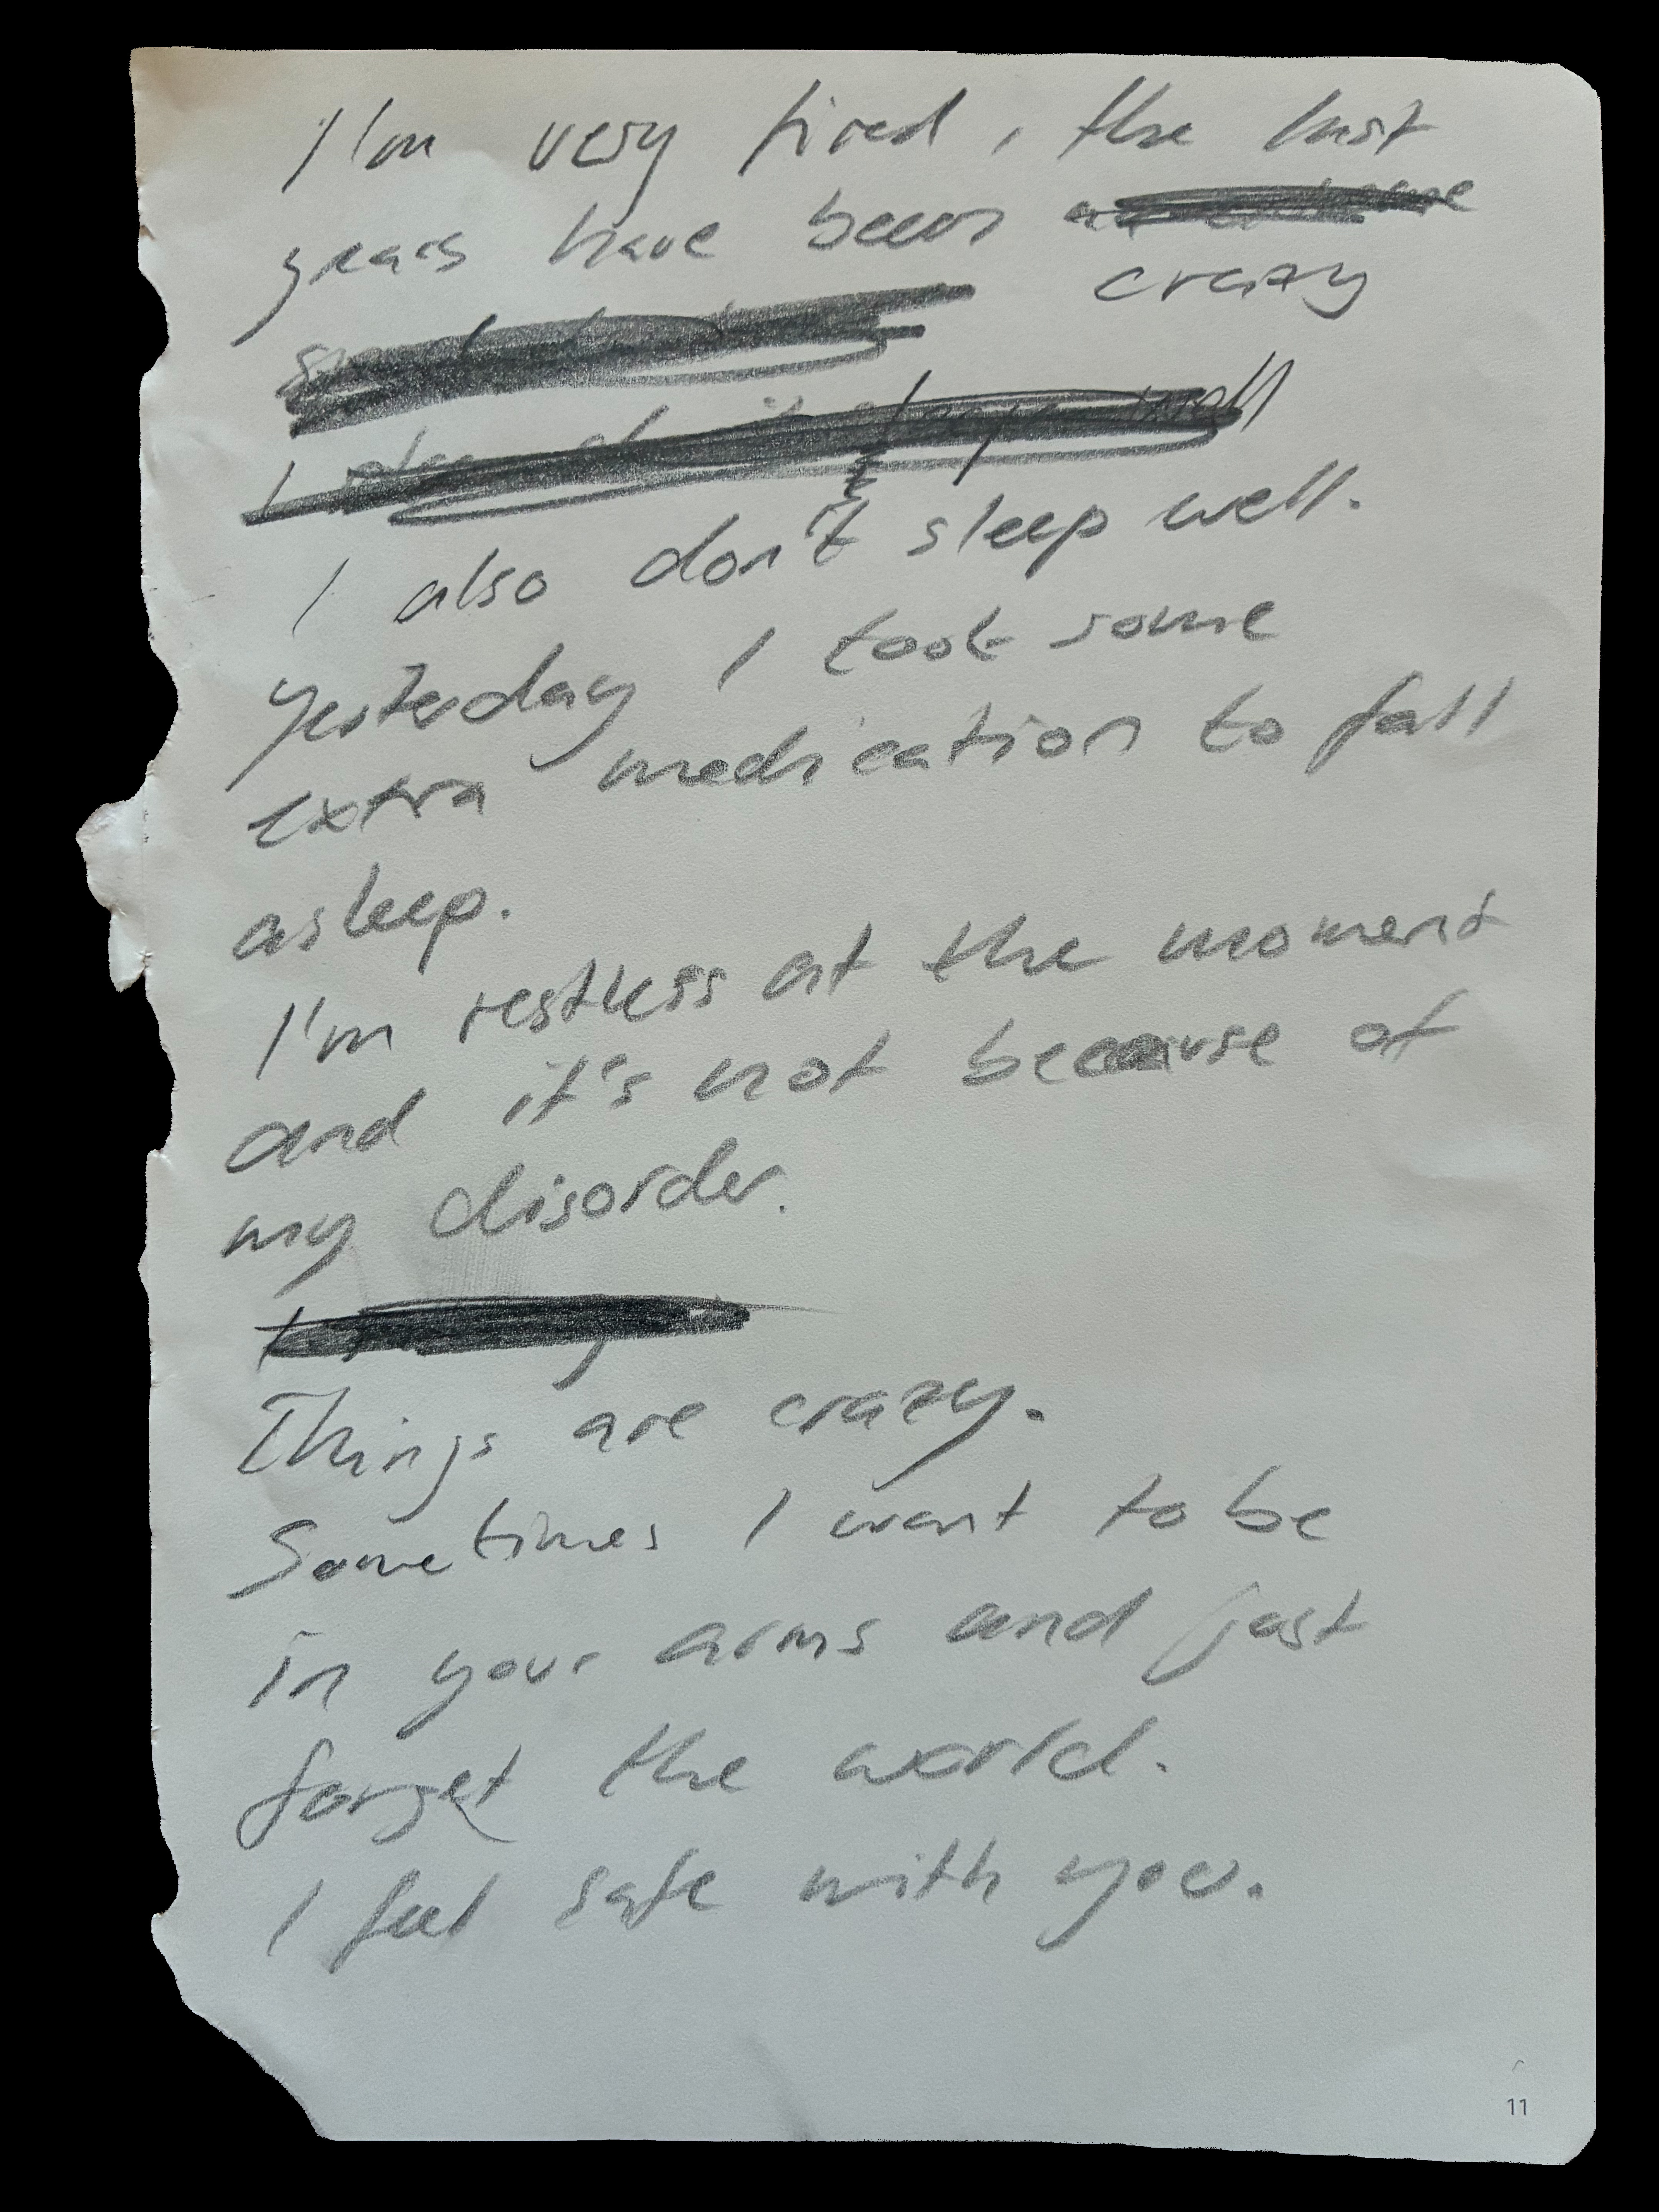 I'm very tired, the last
years have been
crazy
I also don't sleep well.
yesterday I took some
extra medication to fall
asleep.
I'm restless at the moment
and it's not because of
my disorder.
Things are crazy.
Sometimes I want to be
in your arms and just
forget the world.
I feel safe with you.
11